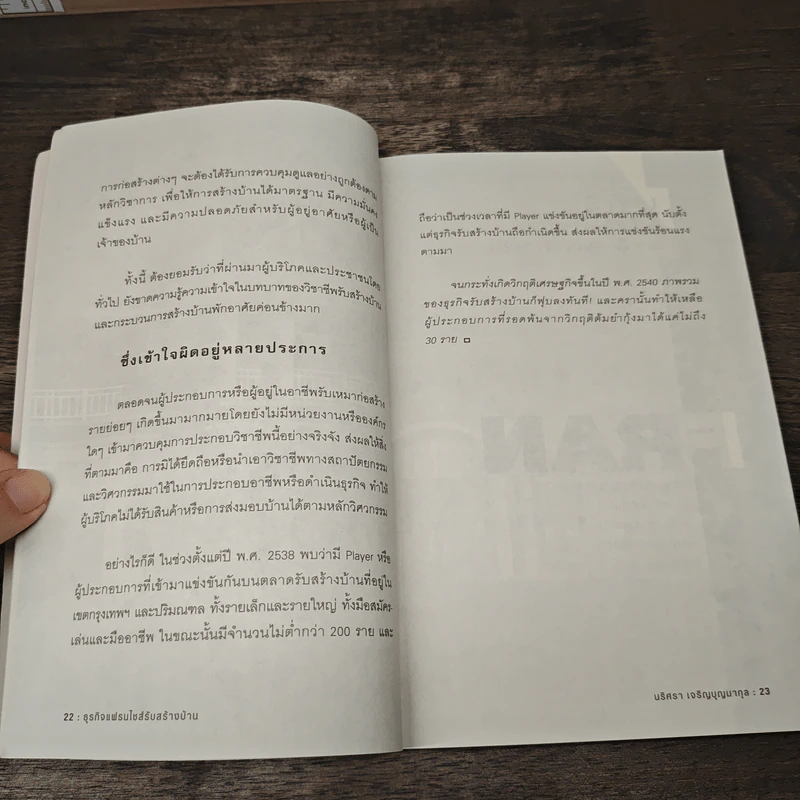 การก่อสร้างต่างๆ จะต้องได้รับการควบคุมดูแลอย่างถูกต้องตาม
หลักวิชาการ เพื่อให้การสร้างบ้านได้มาตรฐาน มีความมั่นคง
แข็งแรง และมีความปลอดภัยสำหรับผู้อยู่อาศัยหรือผู้เป็น
เจ้าของบ้าน
ทั้งนี้ ต้องยอมรับว่าที่ผ่านมาผู้บริโภคและประชาชนโดย
ทั่วไป ยังขาดความรู้ความเข้าใจในบทบาทของวิชาชีพรับสร้างบ้าน
และกระบวนการสร้างบ้านพักอาศัยค่อนข้างมาก
ซึ่งเข้าใจผิดอยู่หลายประการ
ตลอดจนผู้ประกอบการหรือผู้อยู่ในอาชีพรับเหมาก่อสร้าง
รายย่อยๆ เกิดขึ้นมามากมายโดยยังไม่มีหน่วยงานหรือองค์กร
ใดๆ เข้ามาควบคุมการประกอบวิชาชีพนี้อย่างจริงจัง ส่งผลให้สิ่ง
ที่ตามมาคือ การมิได้ยึดถือหรือนำเอาวิชาชีพทางสถาปัตยกรรม
และวิศวกรรมมาใช้ในการประกอบอาชีพหรือดำเนินธุรกิจ ทำให้
ผู้บริโภคไม่ได้รับสินค้าหรือการส่งมอบบ้านได้ตามหลักวิศวกรรม
อย่างไรก็ดี ในช่วงตั้งแต่ปี พ.ศ. 2538 พบว่ามี Player หรือ
ผู้ประกอบการที่เข้ามาแข่งขันกันบนตลาดรับสร้างบ้านที่อยู่ใน
เขตกรุงเทพฯ และปริมณฑล ทั้งรายเล็กและรายใหญ่ ทั้งมือสมัคร-
เล่นและมืออาชีพ ในขณะนั้นมีจำนวนไม่ต่ำกว่า 200 ราย และ
22 : ธุรกิจแฟรนไชส์รับสร้างบ้าน
ถือว่าเป็นช่วงเวลาที่มี Player แข่งขันอยู่ในตลาดมากที่สุด นับตั้ง
แต่ธุรกิจรับสร้างบ้านถือกำเนิดขึ้น ส่งผลให้การแข่งขันร้อนแรง
ตามมา
จนกระทั่งเกิดวิกฤติเศรษฐกิจขึ้นในปี พ.ศ. 2540 ภาพรวม
ของธุรกิจรับสร้างบ้านก็ฟุบลงทันที! และครานั้นทำให้เหลือ
ผู้ประกอบการที่รอดพ้นจากวิกฤติต้มยำกุ้งมาได้แค่ไม่ถึง
30 ราย
นริศรา เจริญบุญนากุล : 23